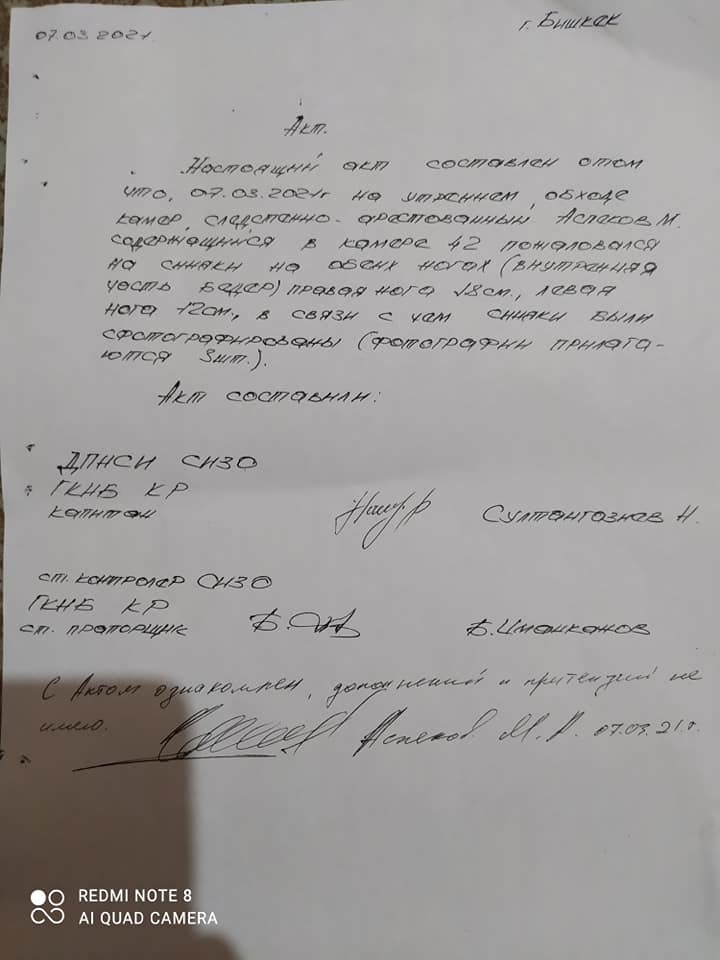 07.03 2021
г. Бишкек
Акт.
Настоящий акт составлен отом
что, 07.03.2021г на утреннем обходе
камер, следстенно-арестованный Аспеков М.
содержащийся в камере 42 пожаловался
на синяки на обеих ногах (внутренняя
часть бедер) правая нога 18см., левая
нога 12см., в связи с чем синяки были
сфотографированы (фотографии прилага-
ются 3шт.).
Акт составили:
ДПНСИ СИЗО
ГКНБ КР
капитан Султангазиев Н.
ст. контролер СИЗО
ГКНБ КР
ст. прапорщик Б. Иманканов
С Актом ознакомлен, дополнений и притензий не
имею. Аспеков М. А. 07.03.21г.
REDMI NOTE 8
AI QUAD CAMERA